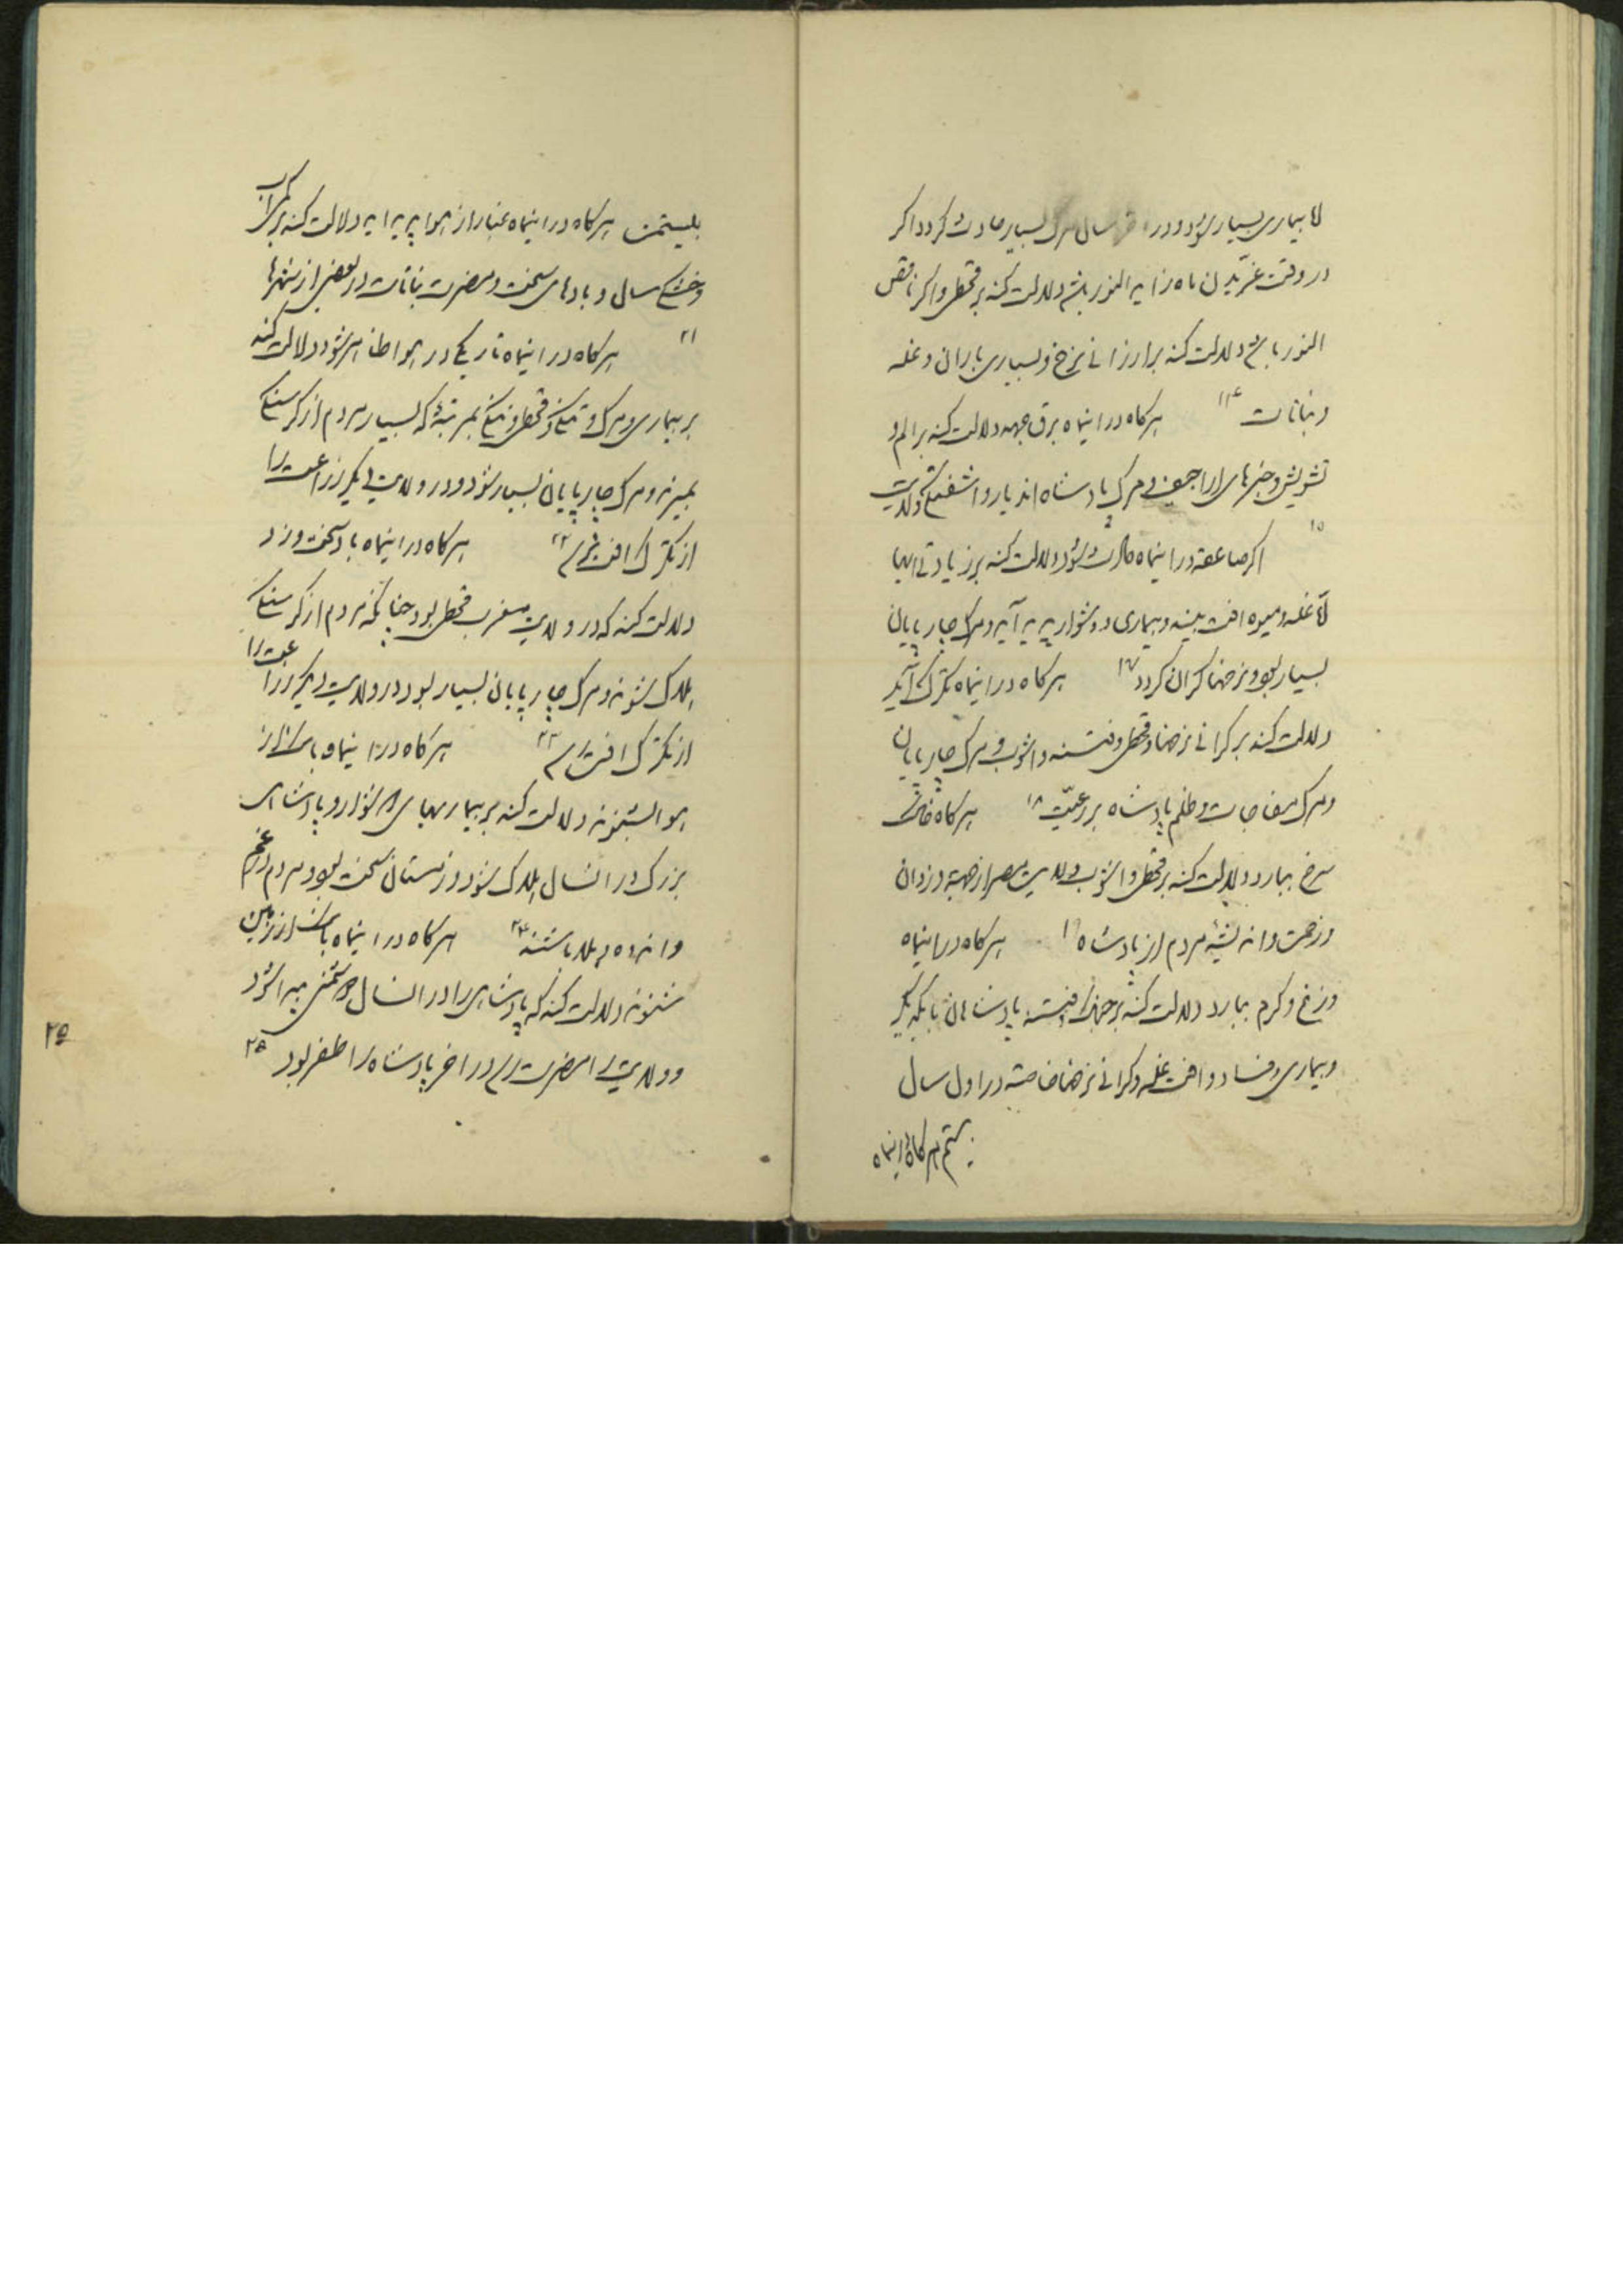 لا بیماری بسیار شود و در آخر سال مرگ بسیار حادث گردد اگر
در وقت غرّیدن ماه زاید النور باشد دلالت کند بر قحطی و اگر ناقص
النور باشد دلالت کند بر ارزانی نرخ و بسیاری باران و غله
و نباتات ۱۴ هرگاه در اینماه برق جهد دلالت کند بر الم و
تشویش و خبرهای اراجیف و مرگ پادشاه اندیار و اشفتگی ولایت
۱۵ اگر صاعقه در اینماه حادث شود دلالت کند بر زیادتی ابها
لا غله و میوه افت بیند و بیماری و دشوار پدید آید و مرگ چارپایان
بسیار بود و نرخها گران گردد ۱۷ هرگاه در اینماه تگرگ آید
دلالت کند بر گرانی نرخها و قحطی و فتنه و اشوب و مرگ چارپایان
و مرگ مفاجات و ظلم پادشاه بر رعیّت ۱۸ هرگاه خاک
سرخ ببارد دلالت کند بر قحطی و اشوب ولایت مصر از جهته دزدان
و زحمت و اندیشهٔ مردم از پادشاه ۱۹ هرگاه در اینماه
وزغ و کرم ببارد دلالت کند بر جنگ و فتنه پادشاهان با یکدیگر
و بیماری و فساد و افت غله و گرانی نرخها خاصّه در اول سال
بیستم هرگاه در اینماه
بیستم هرگاه در اینماه غبار از هوا پدید اید دلالت کند بر کمی اب
و خشک سال و بادهای سخت و مضرت نباتات در بعضی از شهرها
۲۱ هرگاه در اینماه تاریکی در هوا ظاهر شود دلالت کند
بر بیماری و مرگ و تنگی و قحطی و تنگی بمرتبهٔ که بسیار مردم از گرسنگی
بمیرند و مرگ چارپایان بسیار شود و در ولایت دیگر زراعت را
از تگرگ افت رسد ۲۲ هرگاه در اینماه باد سخت وزد
دلالت کند که در ولایت مغرب قحطی بود چنانکه مردم از گرسنگی
هلاک شوند و مرگ چارپایان بسیار بود در ولایت دیگر زراعت را
از تگرگ افت رسد ۲۳ هرگاه در اینماه بانگی از
هوا بشنوند دلالت کند بر بیماریهای دشوار و پادشاهی
بزرگ در انسال هلاک شود و زمستان سخت بود و مردم در غم
و اندوه و بلا باشند ۲۴ هرگاه در اینماه بانگ از زمین
شنوند دلالت کند که پادشاهی را در انسال دشمنی پیدا شود
و ولایت را مضرت رسد در اخر پادشاه را ظفر بود ۲۵
۲۵